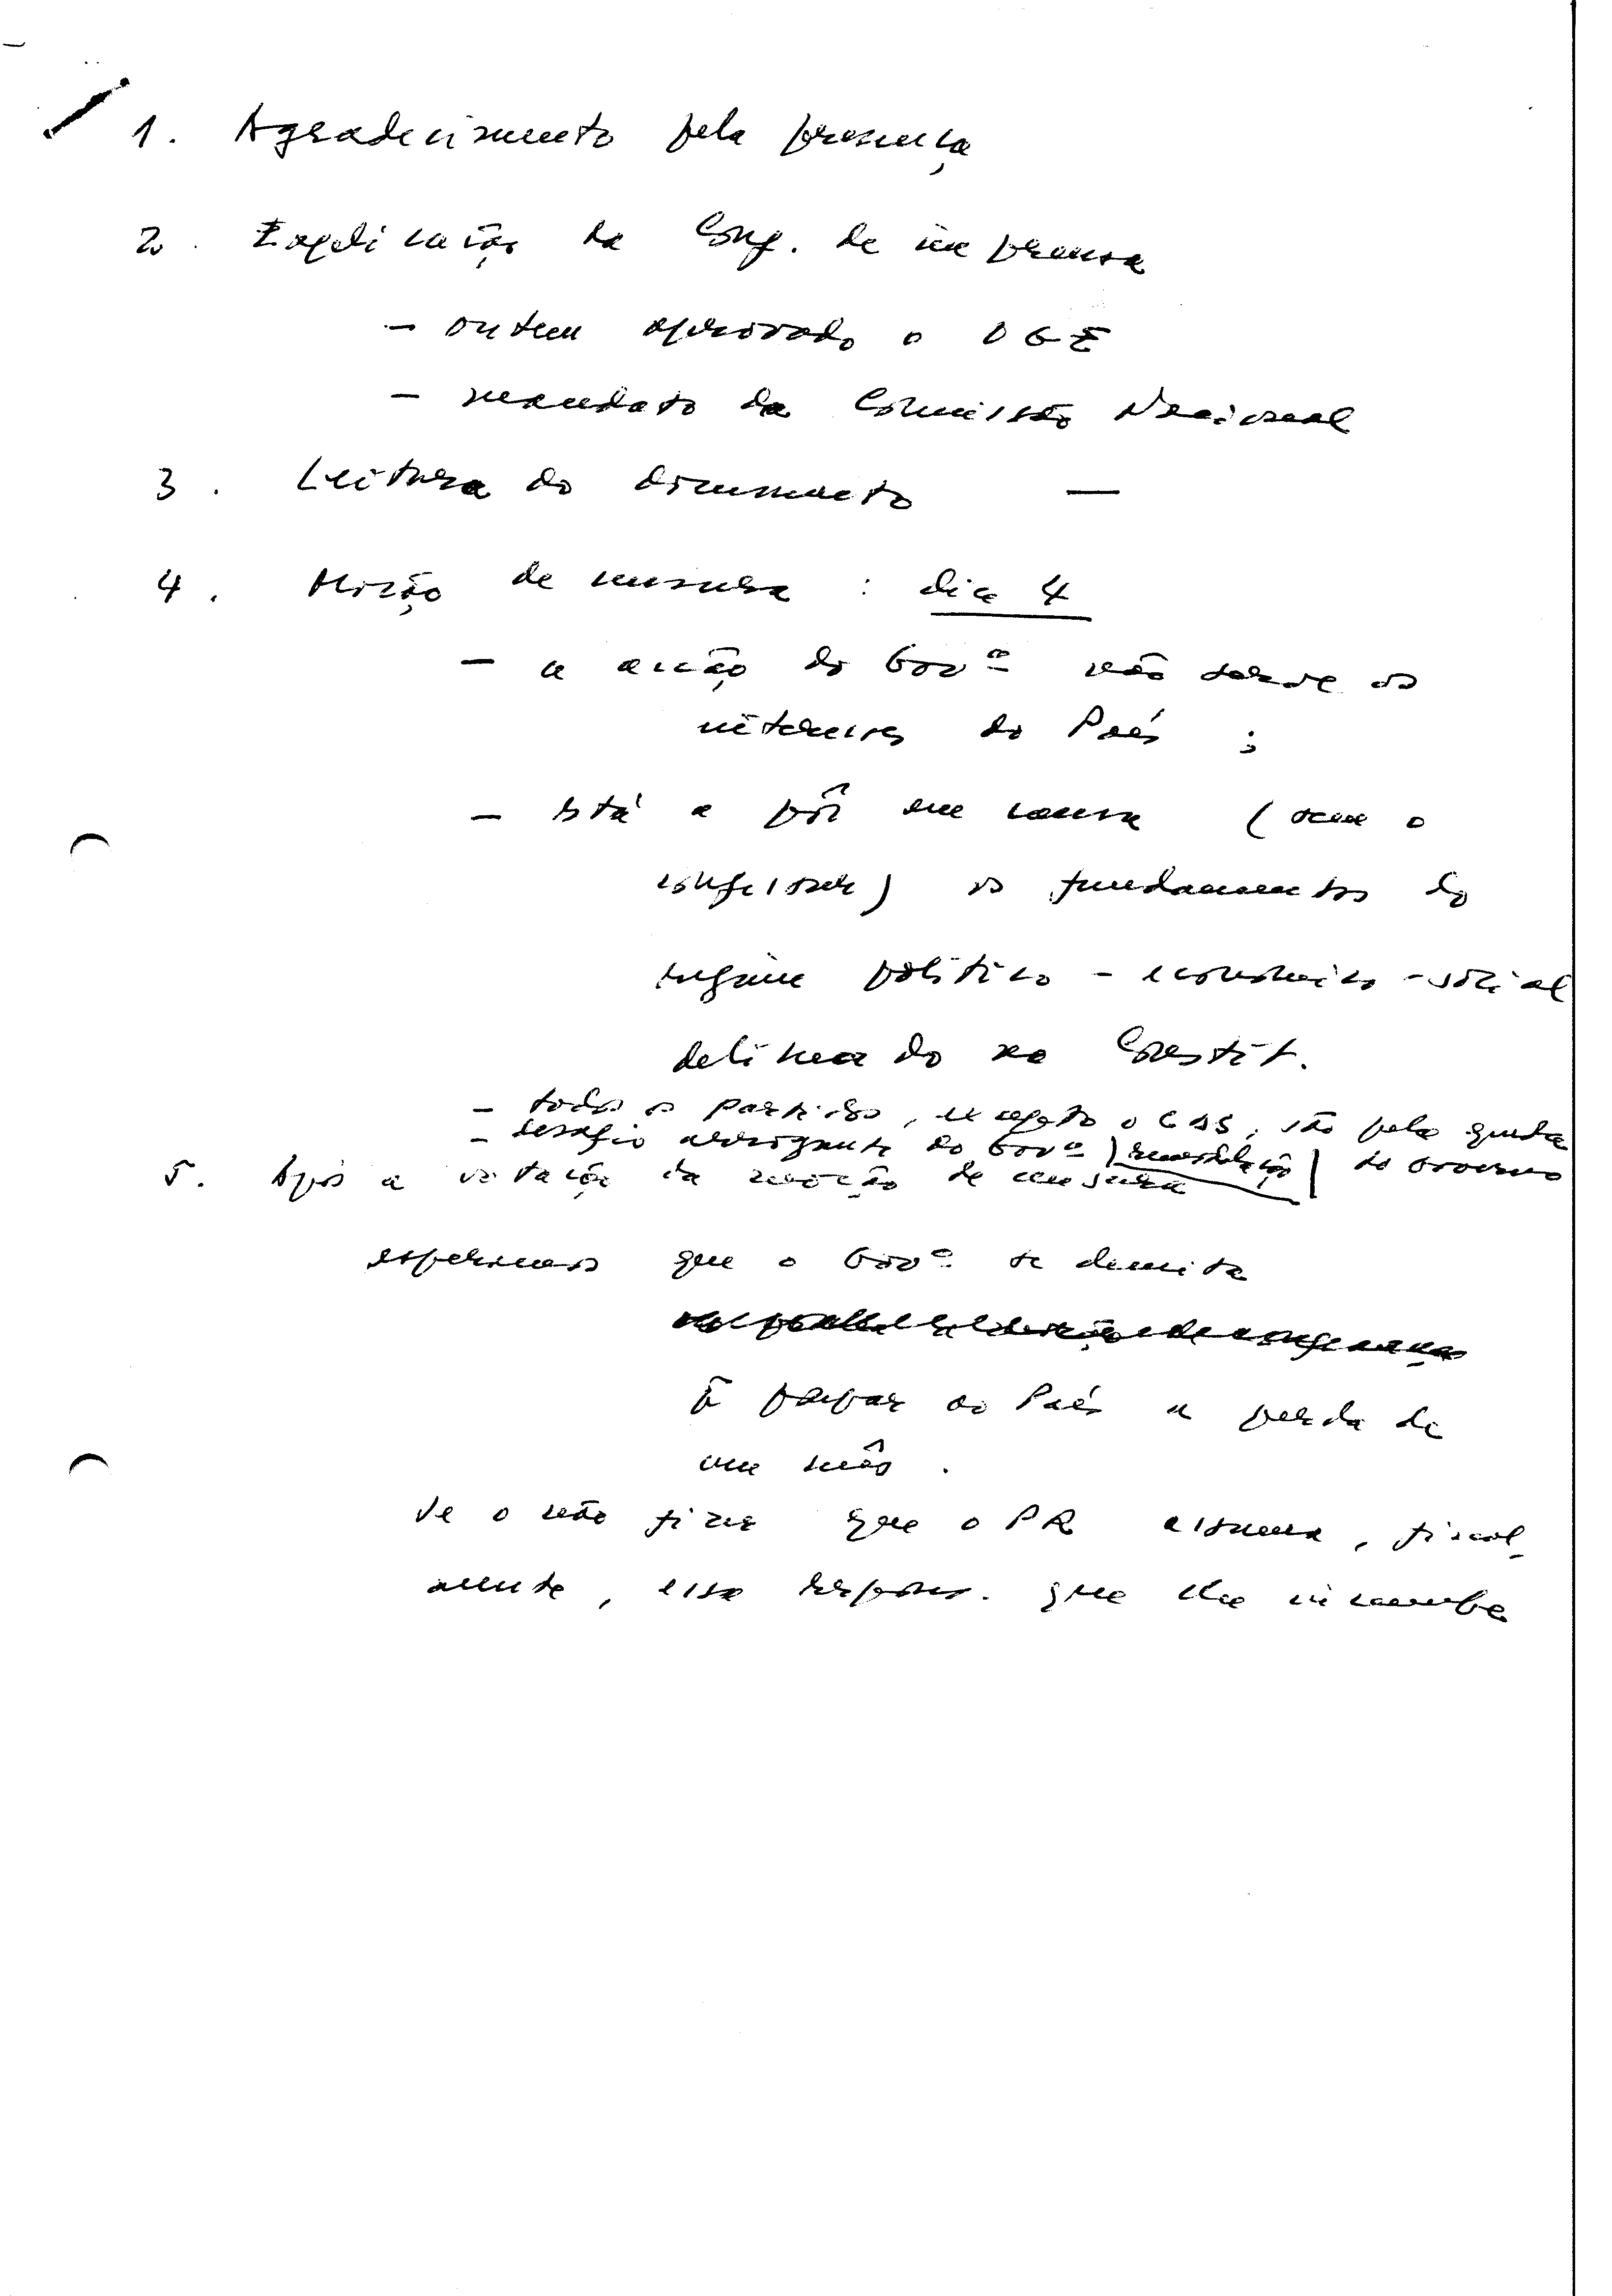 1. Agradecimento pela presença
2. Explicação da Conf. de imprensa
- ontem aprovado o OGE
- mandato da Comissão Nacional
3. Leitura do documento —
4. Moção de censura : dia 4
- a acção do Govº não serve os
interesses do País ;
- Está a pôr em causa (sem o
confessar) os fundamentos do
regime político - económico - social
delineado na Constit.
- todos os partidos, excepto o CDS, são pela queda
do Governo
- desafio arrogante do Govº
5. Após a votação da moção de censura
esperamos que o Govº se demita
P poupar ao País a perda de
um mês.
Se o não fizer que o PR assuma, final-
mente, essa respons. que lhe incumbe